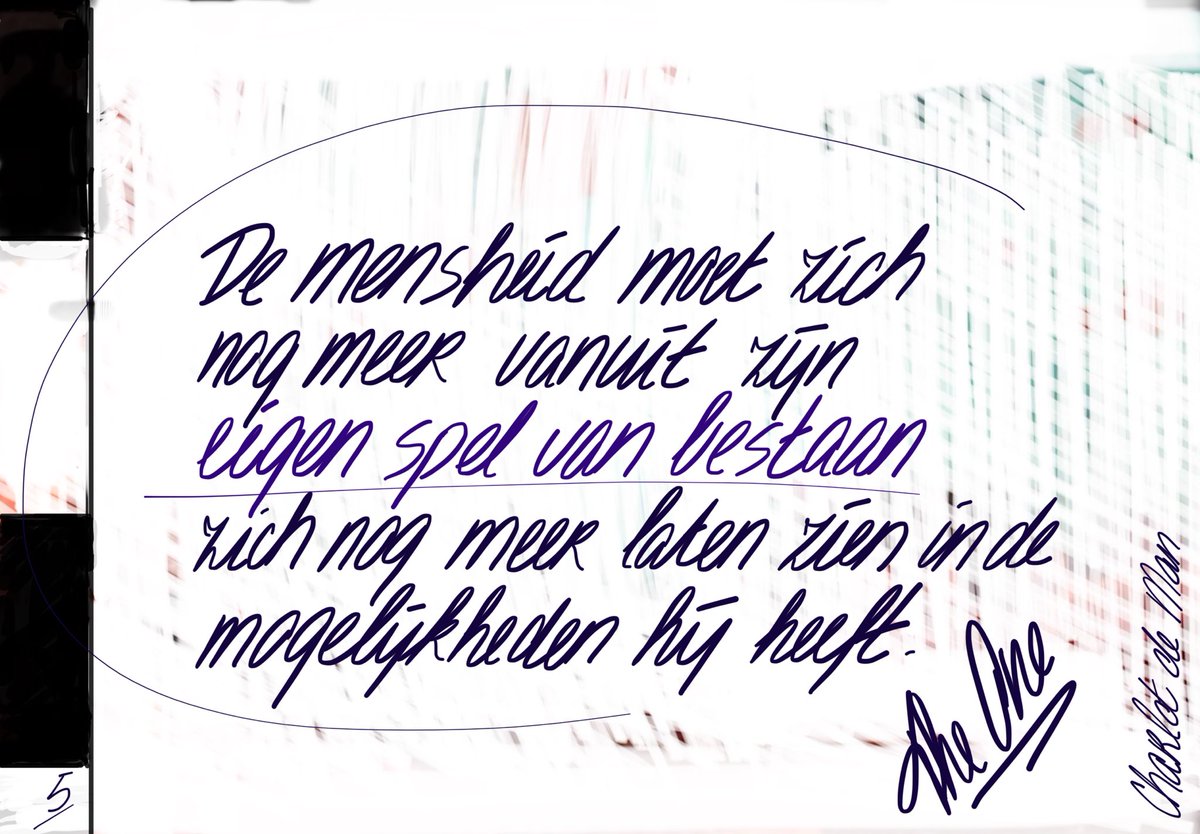 De mensheid moet zich
nog meer vanuit zijn
eigen spel van bestaan
zich nog meer laten zien in de
mogelijkheden hij heeft.
The One
Charlot de Man
5